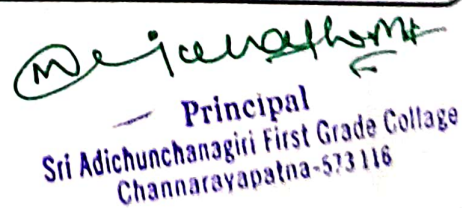 Principal
Sri Adichunchanagiri First Grade Collage
Channarayapatna-573 116